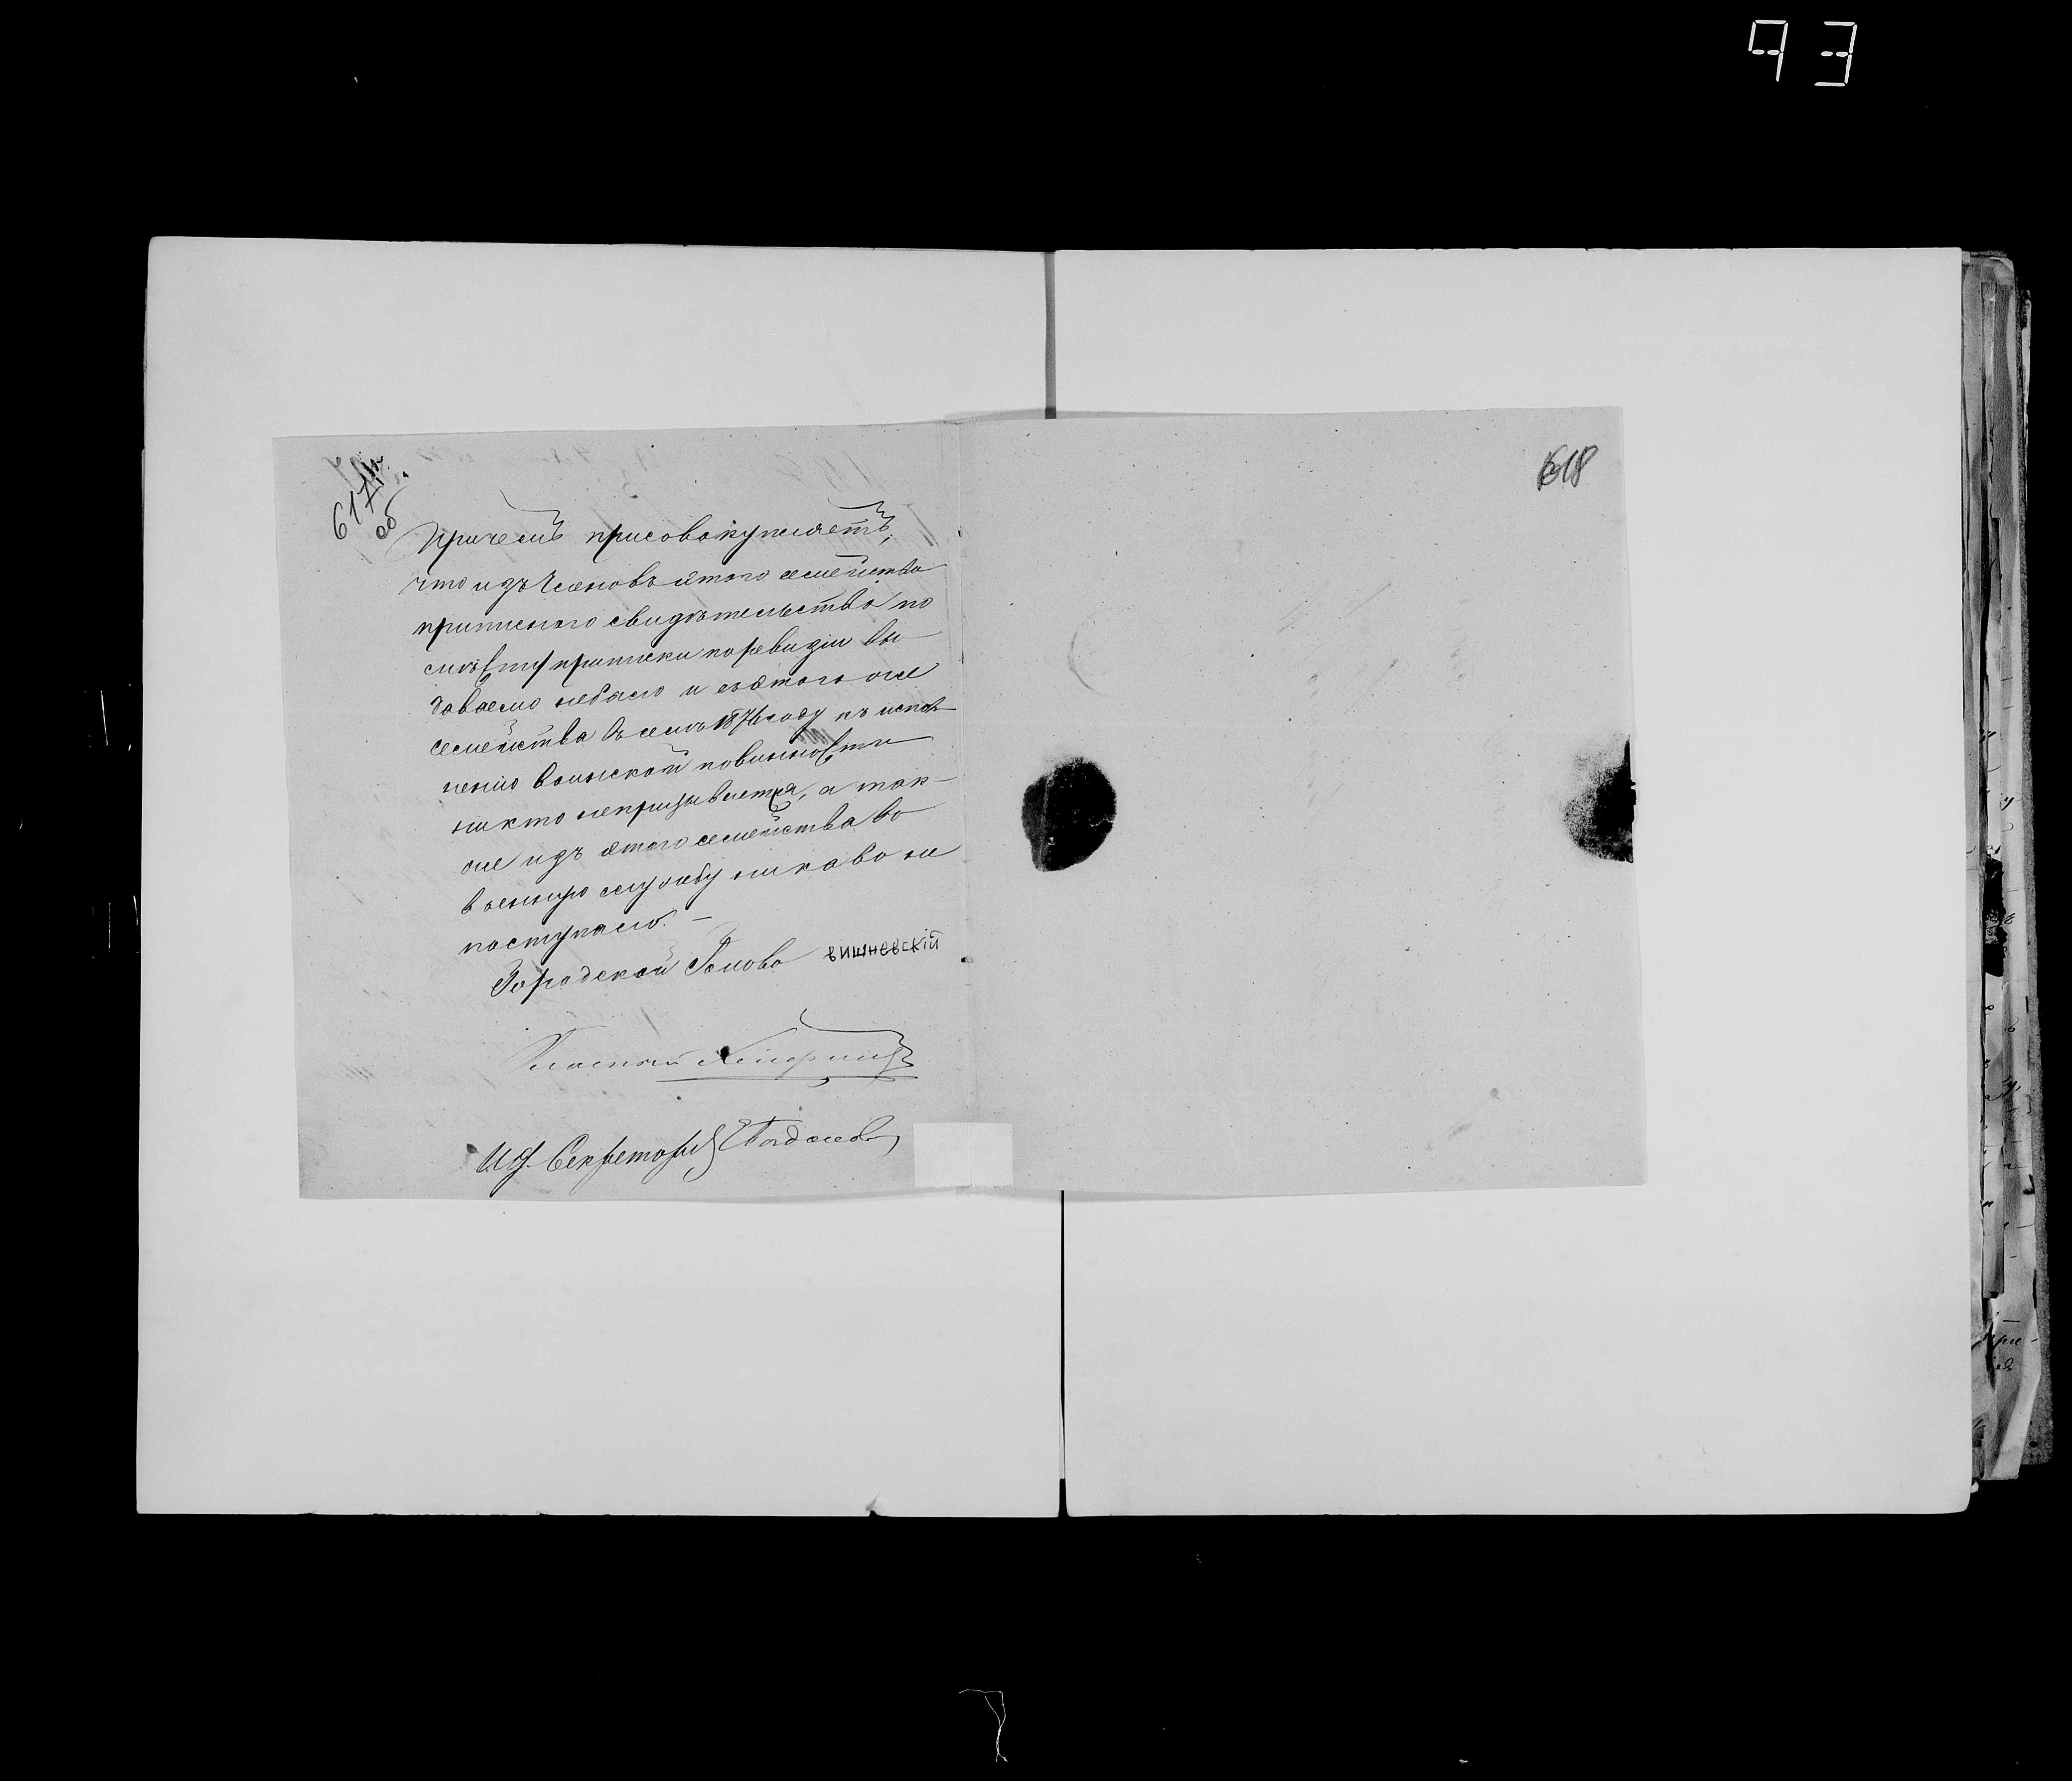 93
617
об.
618
Причемъ присовокупляетъ,
что изъ членовъ этого семейства
приписного свидѣтельства по
сихъ приписки по ревизіи вы-
даваемо небыло и съ этого же
семейства въ семъ 1876 году къ испол-
ненію воинской повинности
никто непризывается, а так-
же изъ этого семейства во
военную службу никаво не
поступало. —
Городской Голова Вишневскій
Гласный
И. д. Секретарь